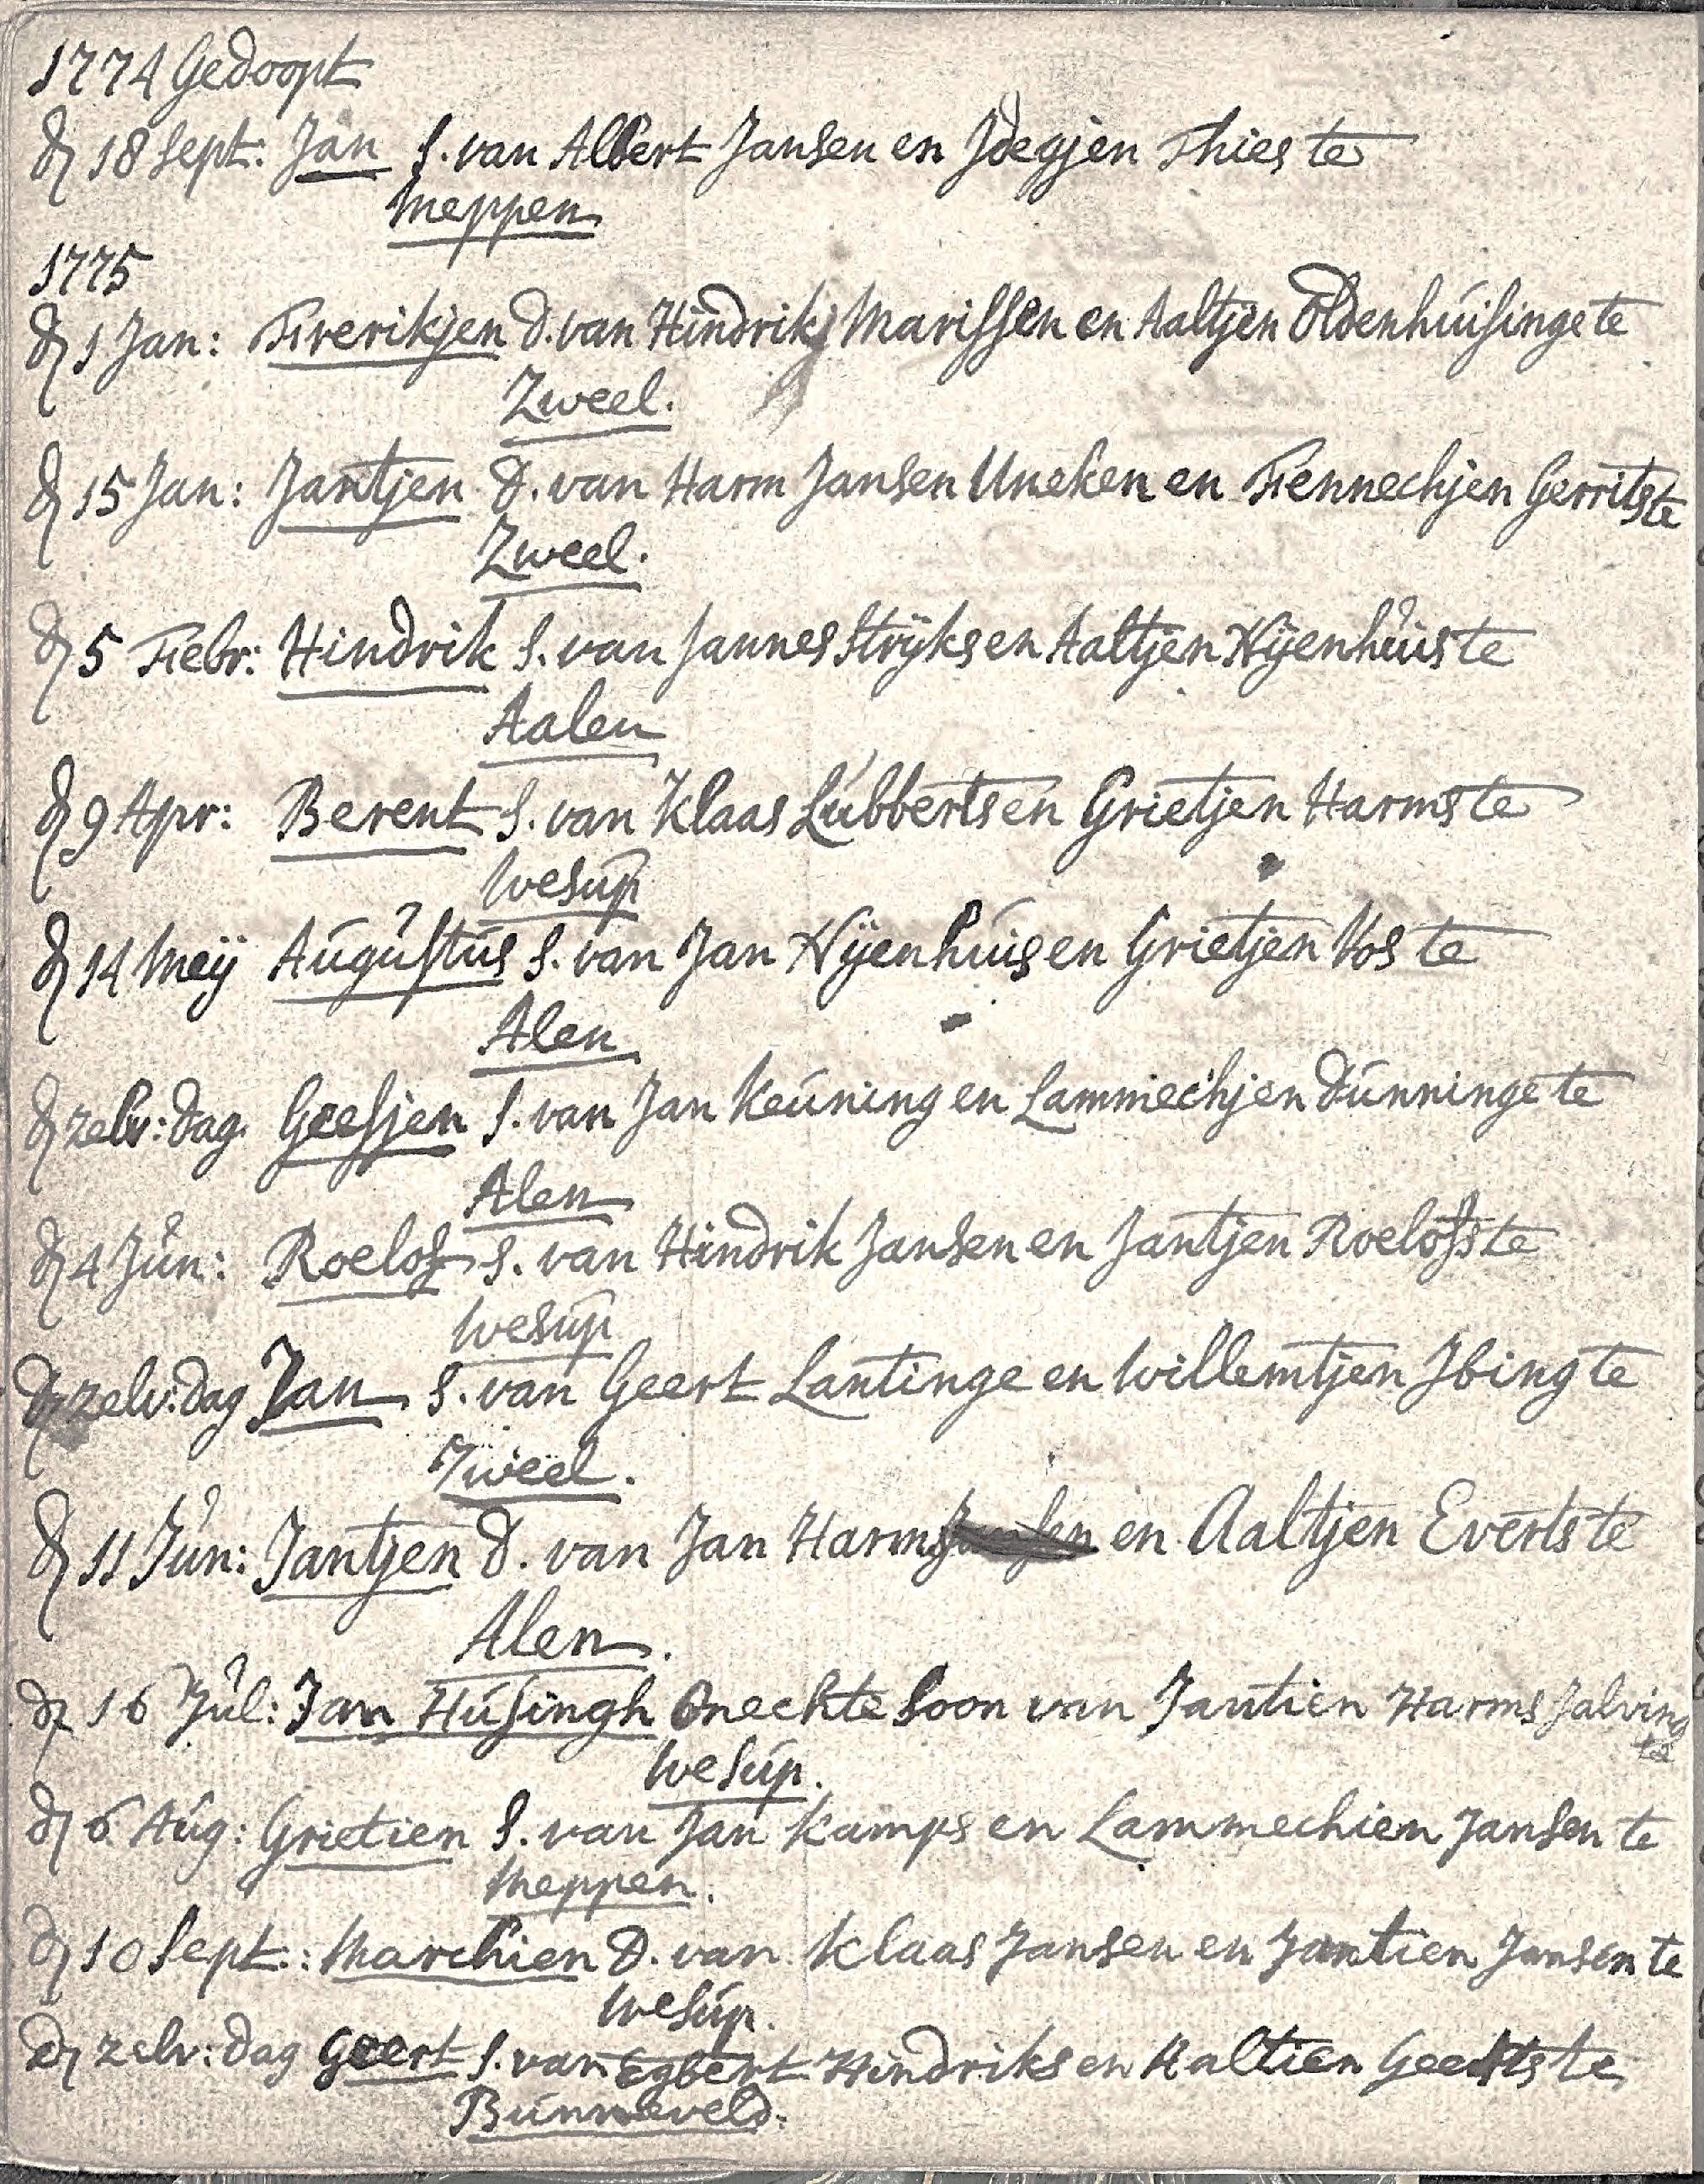 1774 Gedoopt
d 18 Sept: Jan S. van Albert Jansen en Jdegjen Thies te
Meppen
1775
d 1 Jan: Frerikjen d. van Hindrik Marissen en Aaltjen Oldenhuisinge te
Zweel.
d 15 Jan: Jantjen d. van Harm Jansen Uneken en Fennechjen Gerrits te
Zweel.
d 5 Febr: Hindrik S. van Jannes Strijks en Aaltjen Nijenhuis te
Aalen
d 9 Apr: Berent S. van Klaas Lubberts en Grietjen Harms te
Wesup
d 14 Meij Augustus S. van Jan Nijenhuis en Grietjen Vos te
Alen
d zelv: dag Geesjen S. van Jan Keuning en Lammechjen dunninge te
Alen
d 4 Jun: Roelof S. van Hindrik Jansen en Jantjen Roelofs te
Wesup
d zelv: dag Jan S. van Geert Lantinge en Willemtjen Jbing te
Zweel.
d 11 Jun: Jantjen d. van Jan Harms en Aaltjen Everts te
Alen.
d 16 Jul: Jan Husingh Onechte Soon van Jantien Harms Jalving
te
Wesup.
d 6 Aug: Grietien S. van Jan Kamps en Lammechien Jansen te
Meppen.
d 10 Sept: Marchien D. van Klaas Jansen en Jantien Jansen te
Wesup.
d zelv: dag Geert S. van Egbert Hindriks en Aaltien Geerts te
Bunneveld.